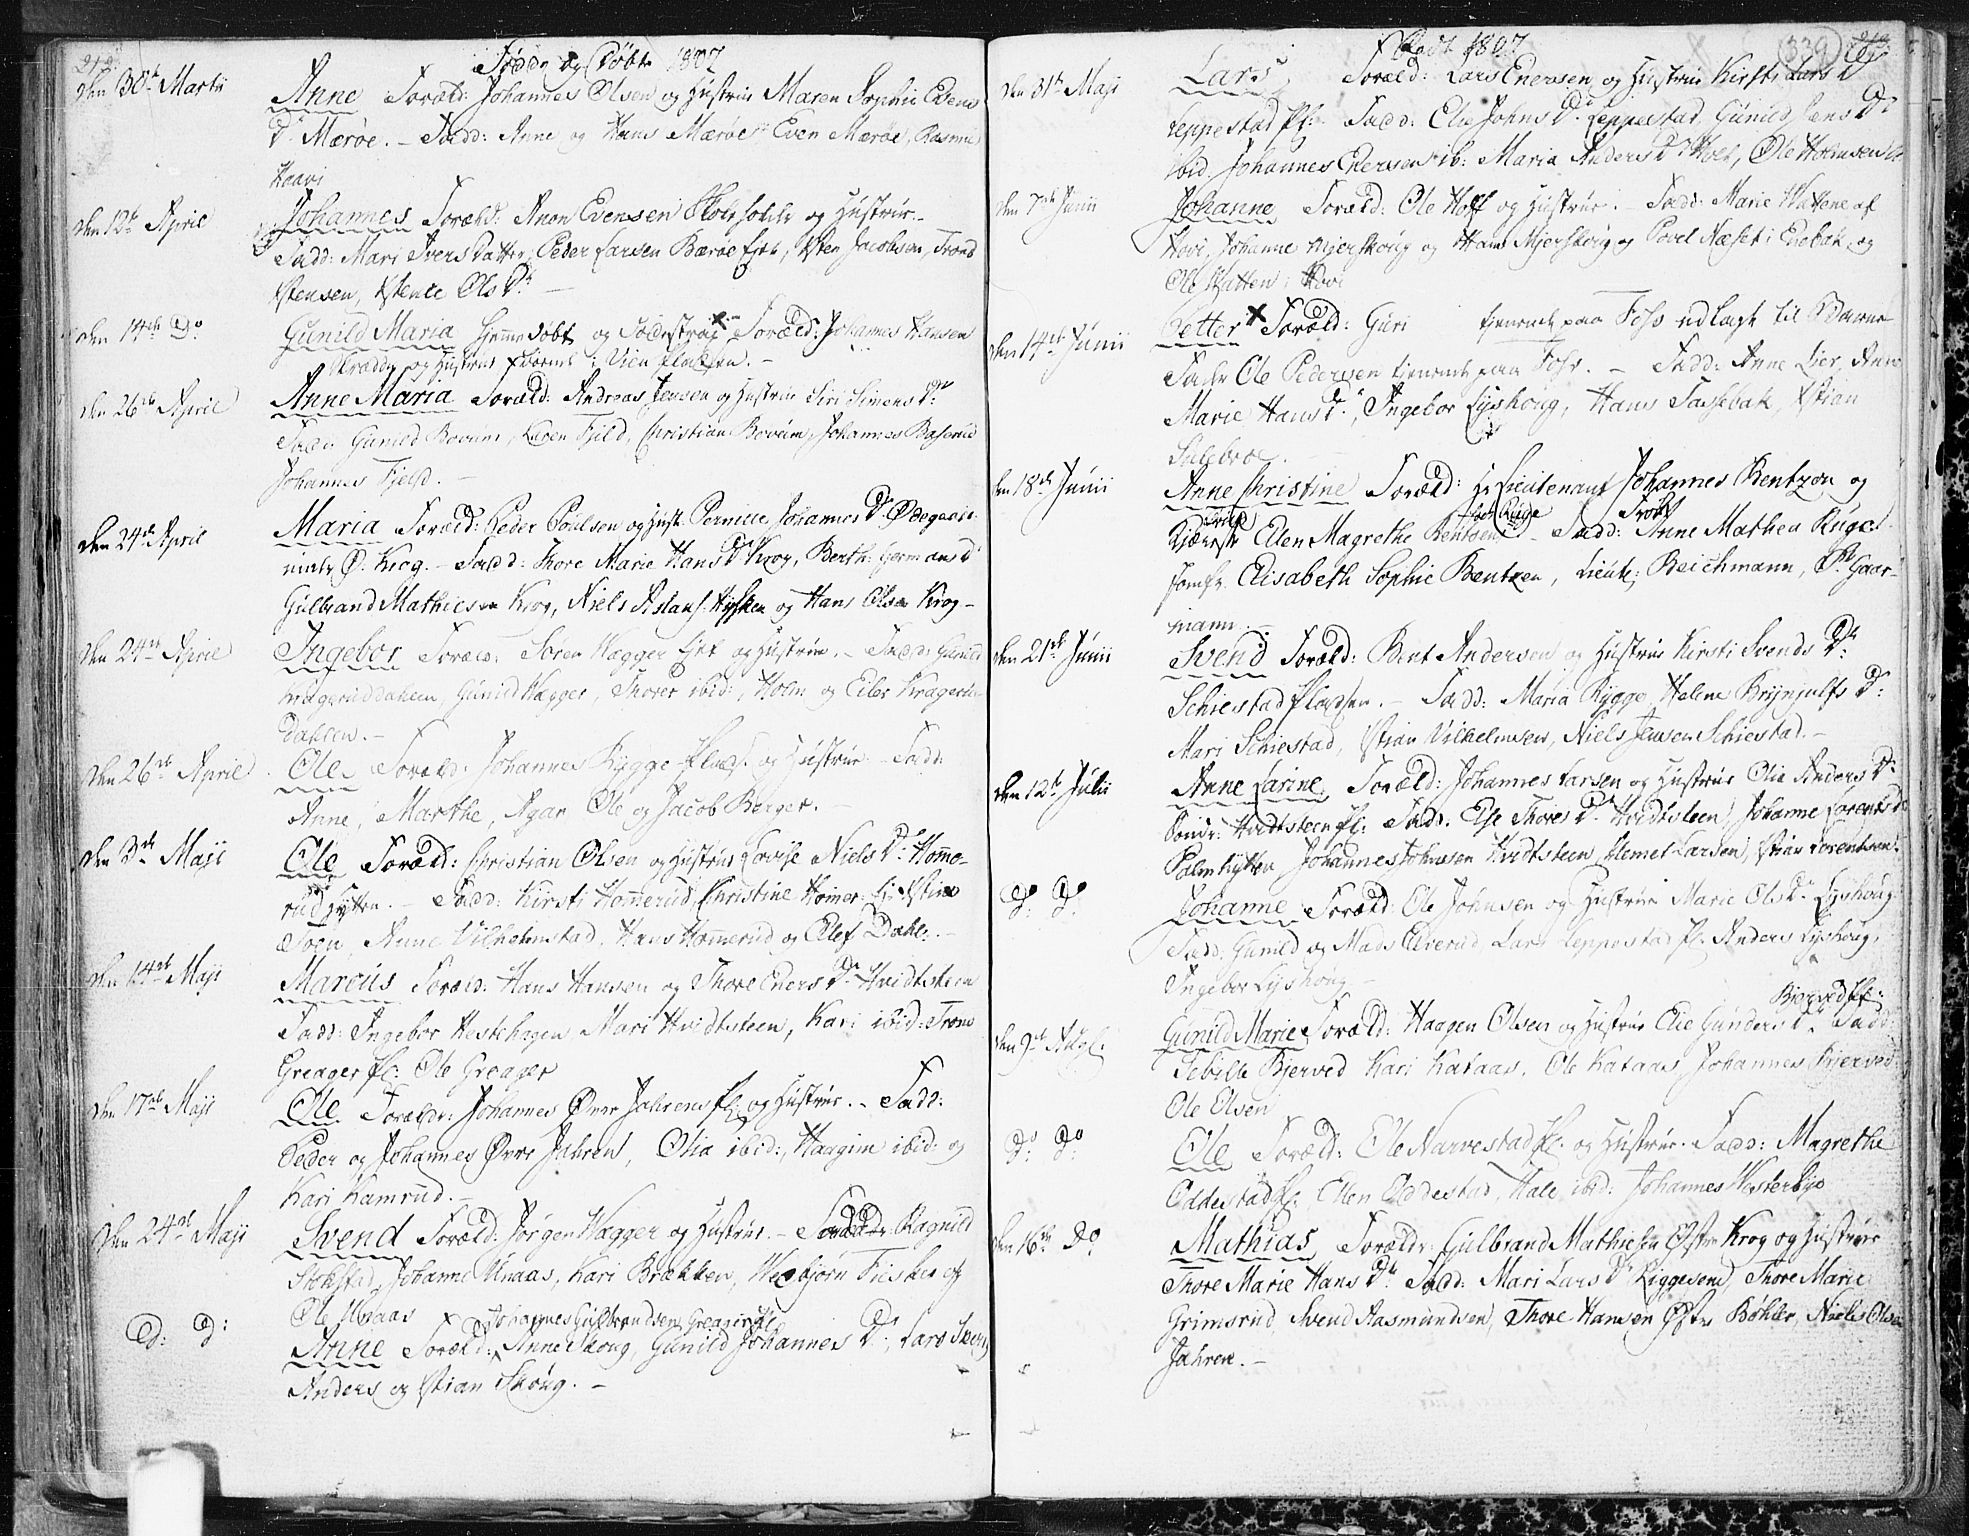 Fødde og Døbte 1807
den 30te Martii Anne Foræld: Johannes Olsen og Hustrue Maren Sophie Evens
Dr Mærøe. – Fadd: Anne og Hans Mærøe, Even Mærøe, Rasmus
Haavi
den 12te April Johannes Foræld: Anon Evensen og Hustrue. –
Fadd: Mari Ivers Datter, Peder Larsen Bærøe Ejet, Jacobsen, Trond
Ols Dr. –
den 14de Do Gunild Maria Hjemmedøbt og Foræld: Johannes Hansen
og Hustrue i Vien Pladsen. –
den 26de April Anne Maria Foræld: Andreas Jensen og Hustrue Siri Simens Dr
Fadd: Gunild Bovum, Karen Fjeld, Christian Bovum, Johannes
Johannes Fjeld. –
den 24de April Maria Foræld: Peder Poulsen og Hust: Pernille Johannes Dr Ødegaard
Ø: Krog. – Fadd: Thore Marie Hans Dr Krog, Berth:
Gulbrand Mathiesen Krog, Niels og Hans Olsen Krog –
den 24de April Ingebor Foræld: Søren Vægger Ejet og Hustrue. – Fadd: Gunild
Gunild Vægger, Thorer ibid:, Holm og Eiler
Dahlen. –
den 26de April Ole Foræld: Johannes Rygge Plads: og Hustrue Fadd:
Anne, Marthe, Agar Ole og Jacob Berger. –
den 3de Maji Ole Foræld: Christian Olsen og Hustrue Lovise Niels Dr Homme-
rud Hytten. – Fadd: Kirsti Hommerud, Christine
Sogn, Anne Vilhelmstad, Hans Hommerud og Olef Dahl. –
den 14de Maji Marcus Foræld: Hans Hansen og Thore Eners Dr Hvidtsteen
Fadd: Ingebor Hestehagen Mari Hvidtsteen, Kari ibid: Trone
Greager Pl: Ole Greager
den 17de Maji Ole Forældr: Johannes Øvre Jahrens Pl: og Hustrue. – Fadd:
Peder og Johannes Øvre Jahren, Olia ibid:, Haagine ibid: og
Kari Kamrud. –
den 24de Maji Svend Foræld: Jørgen Vægger og Hustrue. – Ragnild
Stokstad, Johanne Unaas, Kari Brækken, Vebjørn og
Ole Unaas
Johannes Gulbrandsen Greager
D: D: Anne Foræld: Anne Skoug, Gunild Johannes Dr, Lars Skoug
Anders og Stian Skoug. –
339
Fødde 1807
den 31te Maji Lars, Foræld: Lars Enersen og Hustrue Kirsti Lars Dr
Leppestad Pl: Fadd: Elie Johns Dr Leppestad Gunild Jens Dr
ibid: Johannes Enersen ib: Maria Anders Dr Hoel, Ole Holmsen
den 7de Junii Johanne Foræld: Ole Hoff og Hustrue. – Fadd: Marie Hattene af
Hovi, Johanne Mjerskoug og Hans Mjerskoug og Povel Næset i Enebak og
Ole Hatten i Hovi
den 14de Junii Petter Foræld: Guri tjenende paa Foss udlagt til Barne
Fader Ole Pedersen tjenende paa Foss. – Fadd: Anne Lier, Anne
Marie Hans Dr, Ingebor Lyshoug, Hans Tassebak, Stian
Sulebroe.
den 18de Junii Anne Christine Foræld: Hr Lieutenant Johannes Bentzon og
Kjæreste Ellen Magrethe Bentzen født Ruge – Fadd: Frøk Anne Mathea Ruge
Jomfr. Elisabeth Sophie Bentzen, Lieut: Beichmann, Gaar-
mann. –
den 21de Junii Svend Foræld: Bent Andersen og Hustrue Kirsti Svends Dr
Schiestad Pladsen. – Fadd: Maria Rygge, Helene Brynjulfs Dr
Mari Schiestad, Stian Vilhelmsen, Niels Jensen Schiestad. –
den 12te Julii Anne Larine Foræld: Johannes Larsen og Hustrue Olia Anders Dr
Søndr: Hvidtsteen Pl: Fadd: Else Thores Dr Hvidtsteen, Johanne Lorents Dr
Palmhytten Johannes Johnsen Hvidtsteen, Helmet Larsen, Stian Lorentsen.
Do Do Johanne Foræld: Ole Johnsen og Hustrue Marie Ols Dr Lyshoug
Fadd: Gunild og Mads Elverud, Lars Leppestad Pl: Anders Lyshoug,
Ingebor Lyshoug –
Bjerved Pl:
den 9de Aug: Gunild Marie Foræld: Haagen Olsen og Hustrue Elie Gunders Dr Fadd:
Sebille Bjerved Kari Kataas, Ole Kataas, Johannes Bjerved
Ole Olsen
Do Do Ole Foræld: Ole Narvestad Pl: og Hustrue. Fadd: Magrethe
Oddestad Pl: Ellen Oddestad, Hale ibid: Johannes Westerbye
den 16de Do Mathias Forældr: Gulbrand Mathiesen Østre Krog og Hustrue
Thore Marie Hans Dr Fadd: Mari Lars Dr Liggesond, Thore Marie
Grimsrud Svend Aasmundsen, Thore Hansen Østre Bøhler, Niels Olsen
Jahren. –